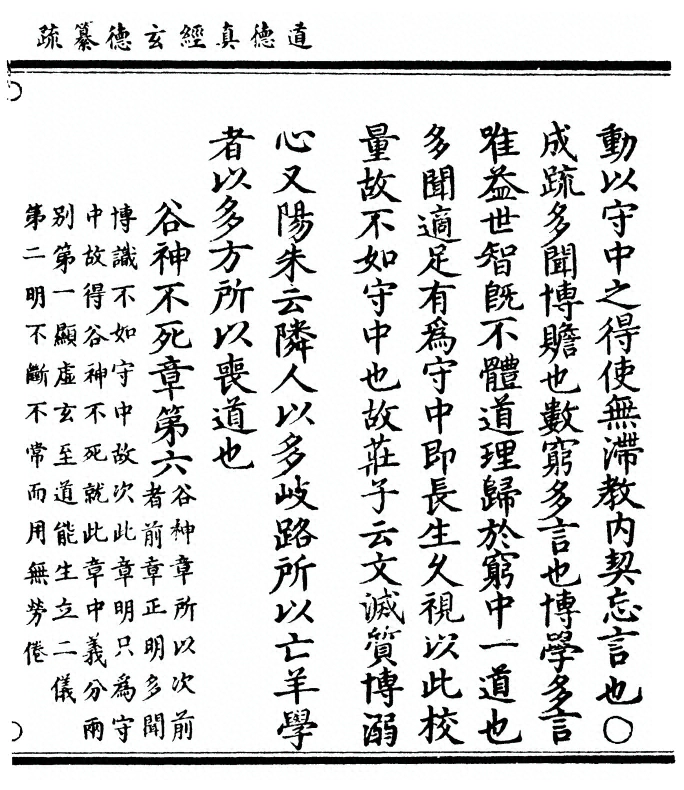 道德真經玄德纂疏
動以守中之得使無滯教内契忘言也〇
成疏多聞博贍也數窮多言也博學多言
唯益世智旣不體道理歸於窮中一道也
多聞適足有爲守中即長生久視以此校
量故不如守中也故莊子云文滅質博溺
心又陽朱云隣人以多岐路所以亡羊學
者以多方所以喪道也
谷神不死章第六谷神章所以次前
者前章正明多聞
博識不如守中故次此章明只爲守
中故得谷神不死就此章中義分兩
别第一顯虚玄至道能生立二儀
第二明不斷不常而用無勞倦